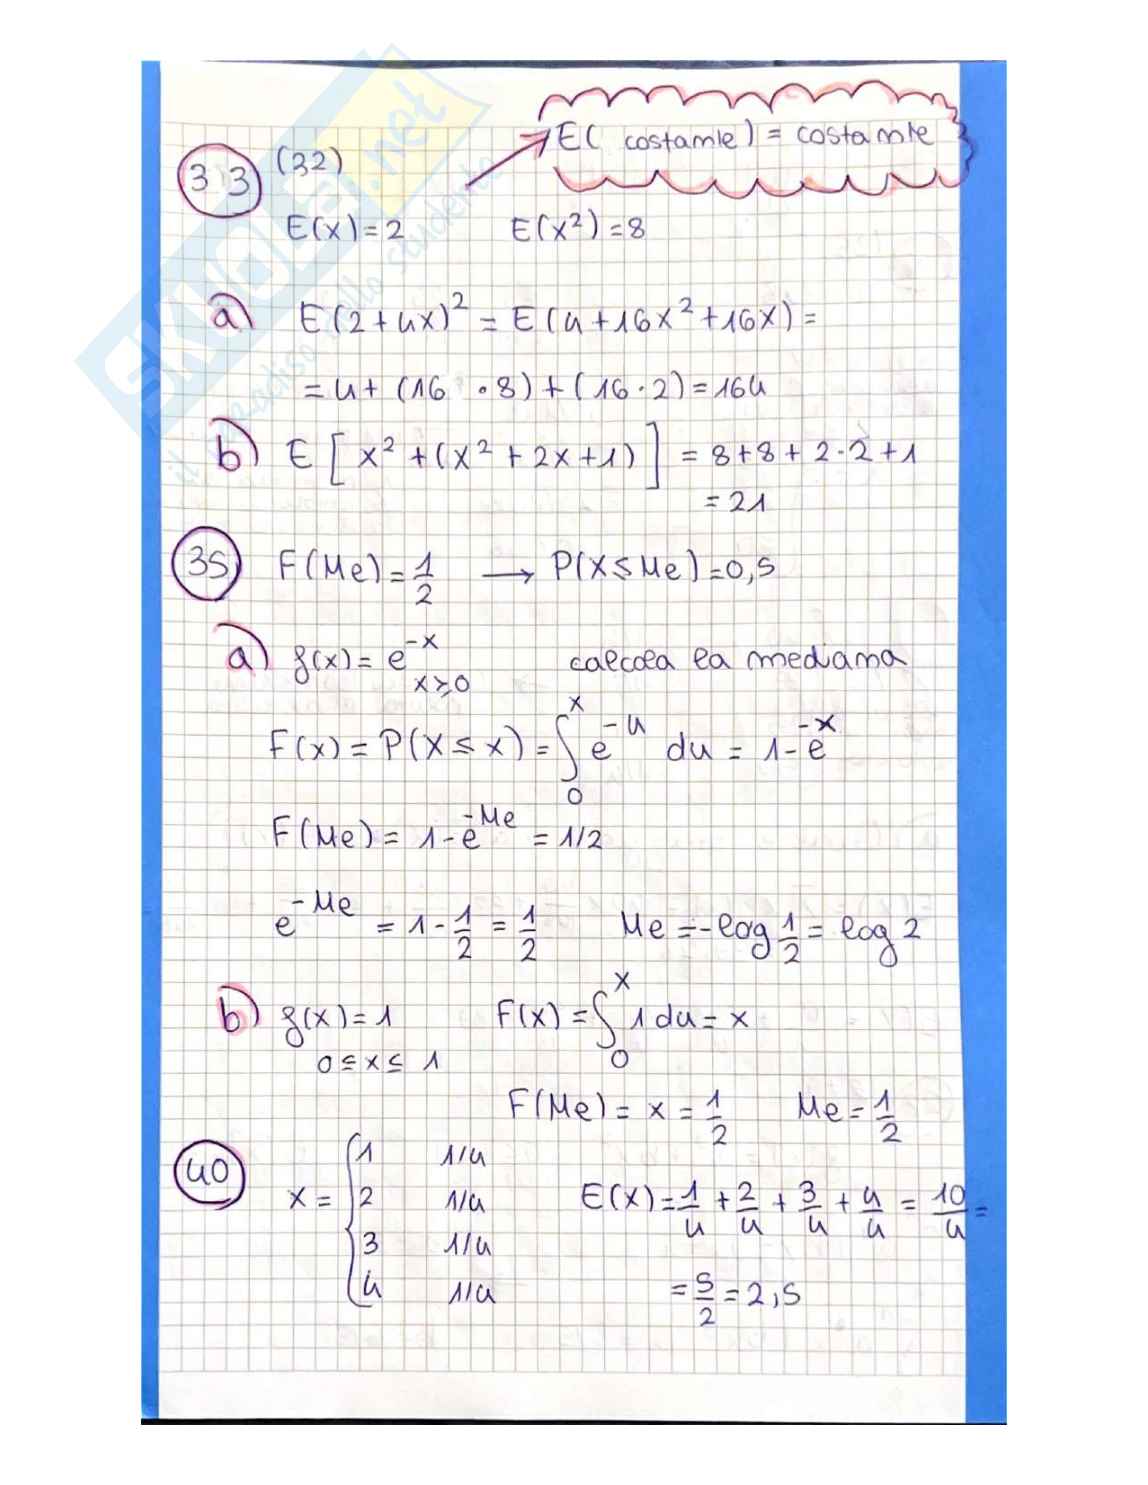 E( costante) = costante
33 (32)
E(x)=2 E(x²)=8
a) E(2+4x)² = E(4+16x²+16x) =
= 4+ (16 · 8) + (16 · 2) = 164
b) E [ x² + (x² + 2x + 1) ] = 8+8+ 2·2 +1
= 21
35 F(Me) = 1/2 → P(X ≤ Me) = 0,5
a) f(x) = e^-x x≥0 calcola la mediana
F(x) = P(X ≤ x) = ∫₀ˣ e^-u du = 1-e^-x
F(Me) = 1-e^-Me = 1/2
e^-Me = 1 - 1/2 = 1/2 Me = -log 1/2 = log 2
b) f(x) = 1 F(x) = ∫₀ˣ 1 du = x
0 ≤ x ≤ 1
F(Me) = x = 1/2 Me = 1/2
40 x = { 1 1/4
2 1/4 E(X) = 1/4 + 2/4 + 3/4 + 4/4 = 10/4 =
3 1/4
4 1/4 = 5/2 = 2,5
SKUOLA.net
il paradiso dello studente